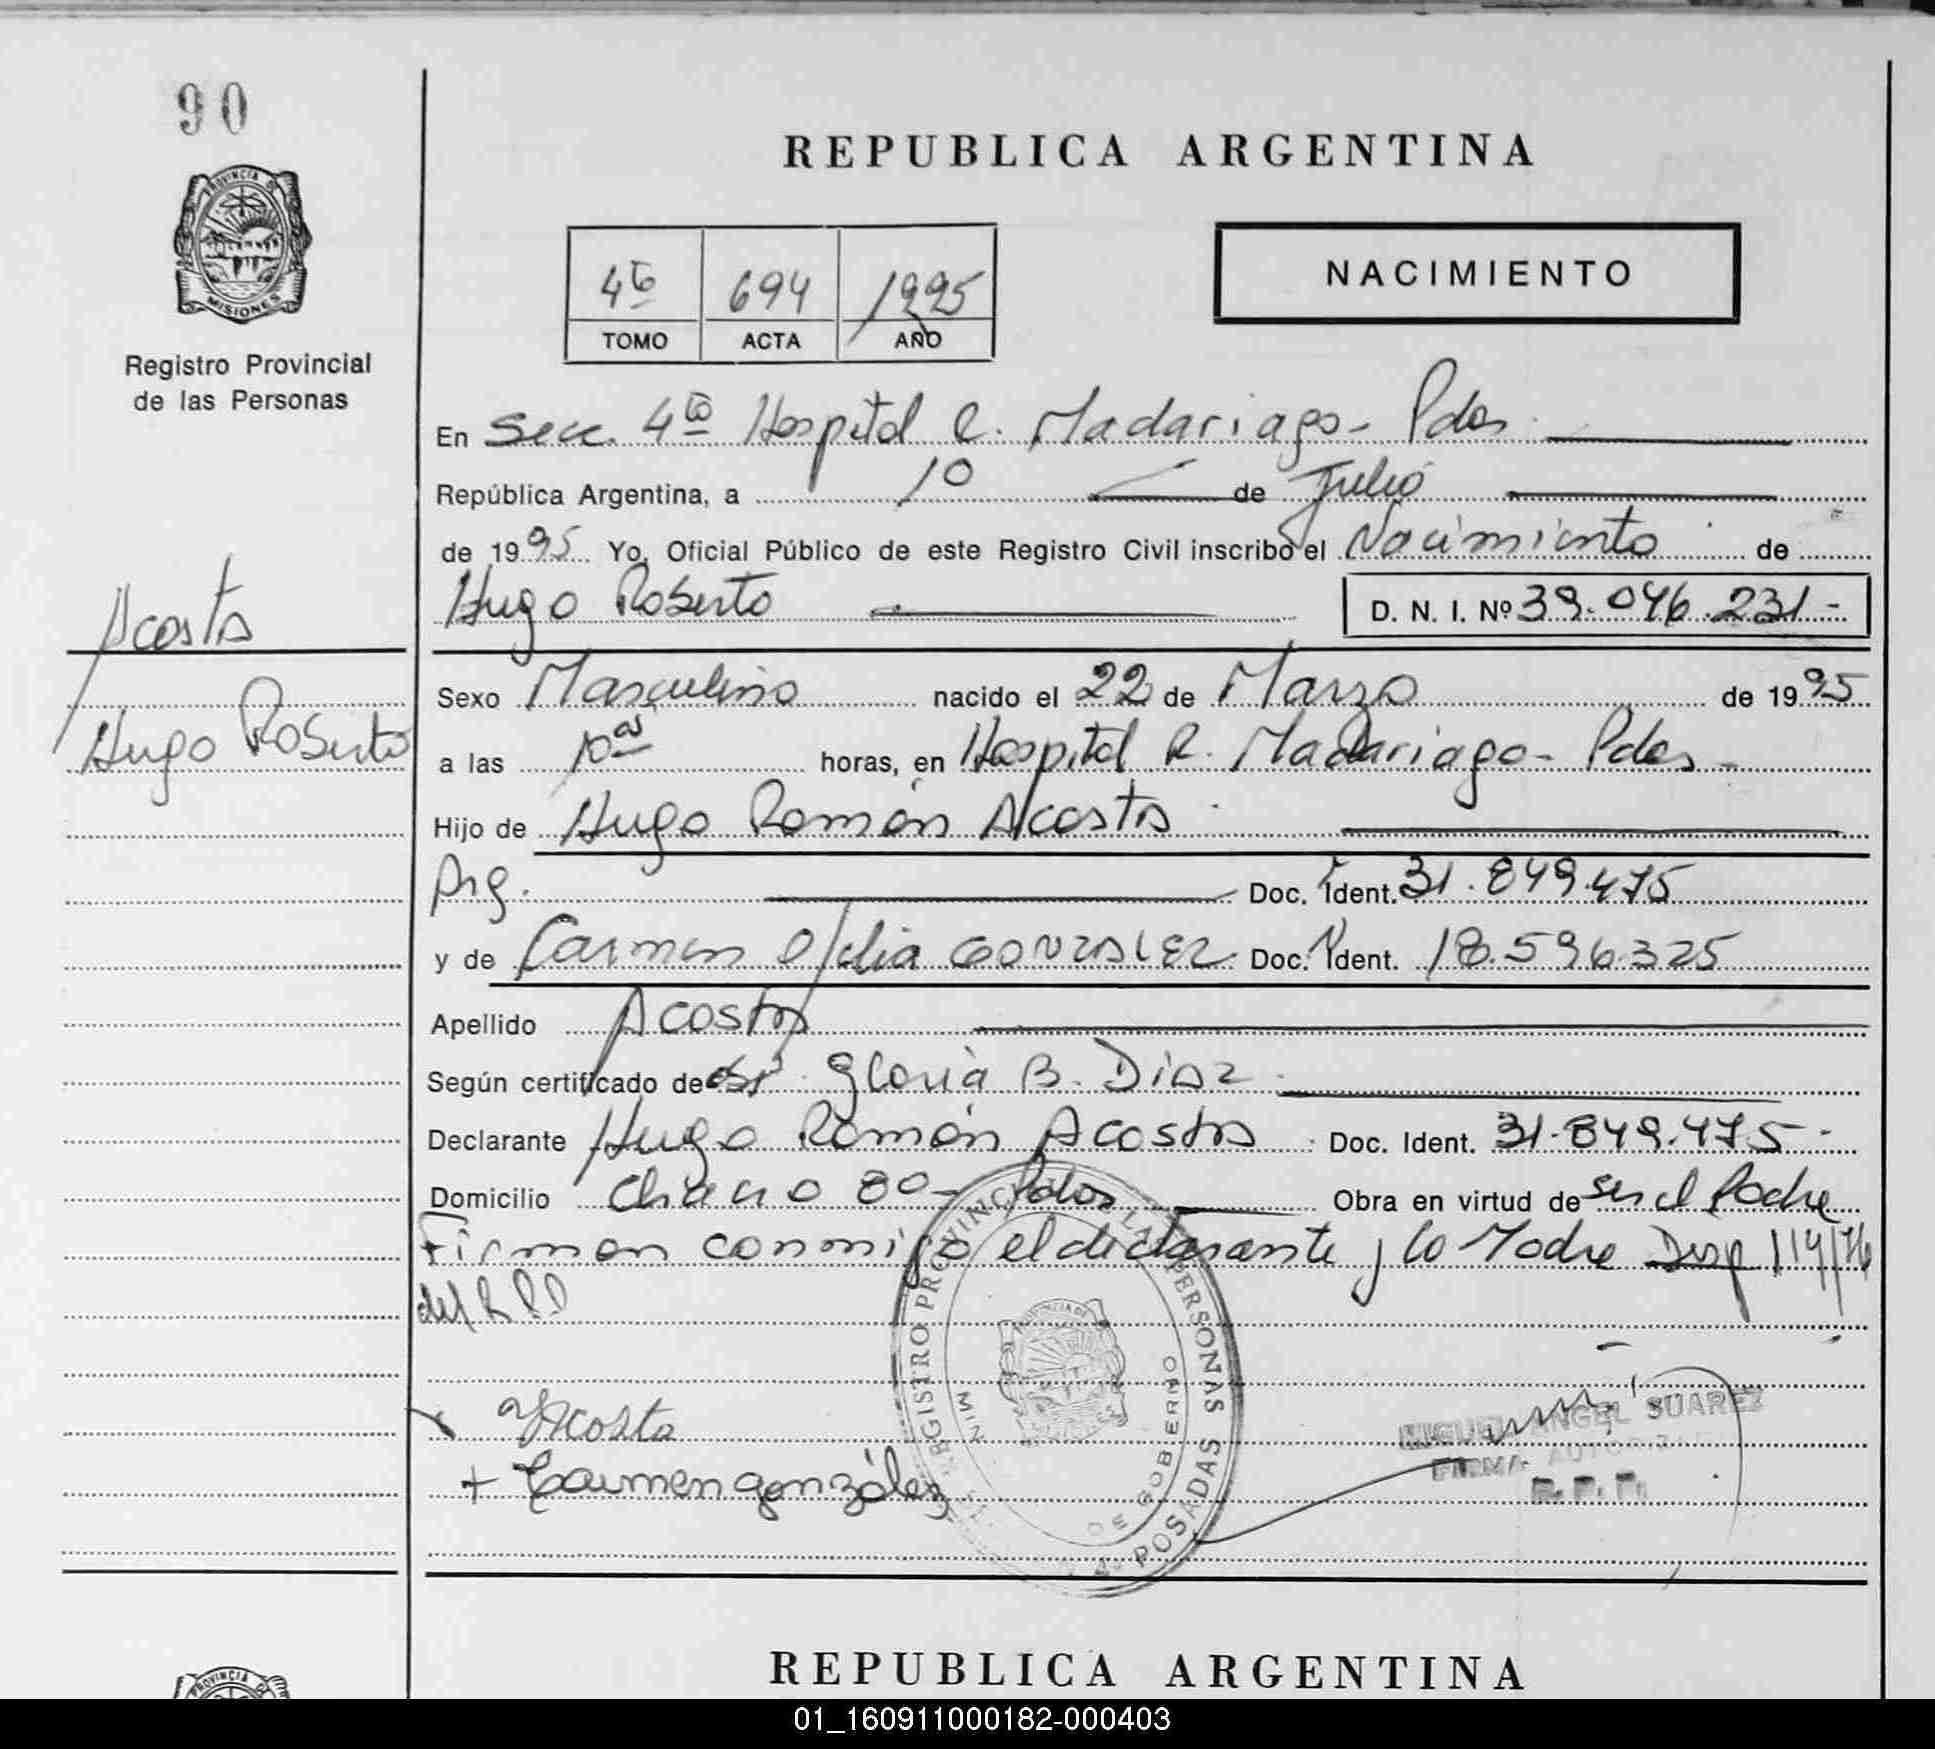 90
REPUBLICA ARGENTINA
PROVINCIA DE
MISIONES
Registro Provincial
de las Personas
4to 694 1995
TOMO ACTA AÑO
NACIMIENTO
En Secc. 4to Hospital R. Madariaga - Pdas
República Argentina, a 10 de Julio
de 1995 Yo, Oficial Público de este Registro Civil inscribo el Nacimiento de
Hugo Roberto D. N. I. Nº 39.046.231.-
Acosta
Hugo Roberto
Sexo Masculino nacido el 22 de Marzo de 1995
a las 10 as horas, en Hospital R. Madariaga - Pdas -
Hijo de Hugo Román Acosta
Arg. Doc. Ident. 31.849.475
y de Carmen Ofelia GONZALEZ Doc. Ident. 18.596.325
Apellido Acosta
Según certificado de Gloria B. Diaz
Declarante Hugo Román Acosta Doc. Ident. 31.849.475.-
Domicilio Chaco 80- Pdas Obra en virtud de ser el Padre
Firman conmigo el declarante y la Madre Disp 114/76
del R P P
REGISTRO PROVINCIAL DE LAS PERSONAS
PROVINCIA DE
MIN. DE GOBIERNO
POSADAS
Acosta
+ Carmen gonzález
MIGUEL ANGEL SUAREZ
FIRMA AUTORIZADA
R. P. P.
REPUBLICA ARGENTINA
PROVINCIA DE
01_160911000182-000403